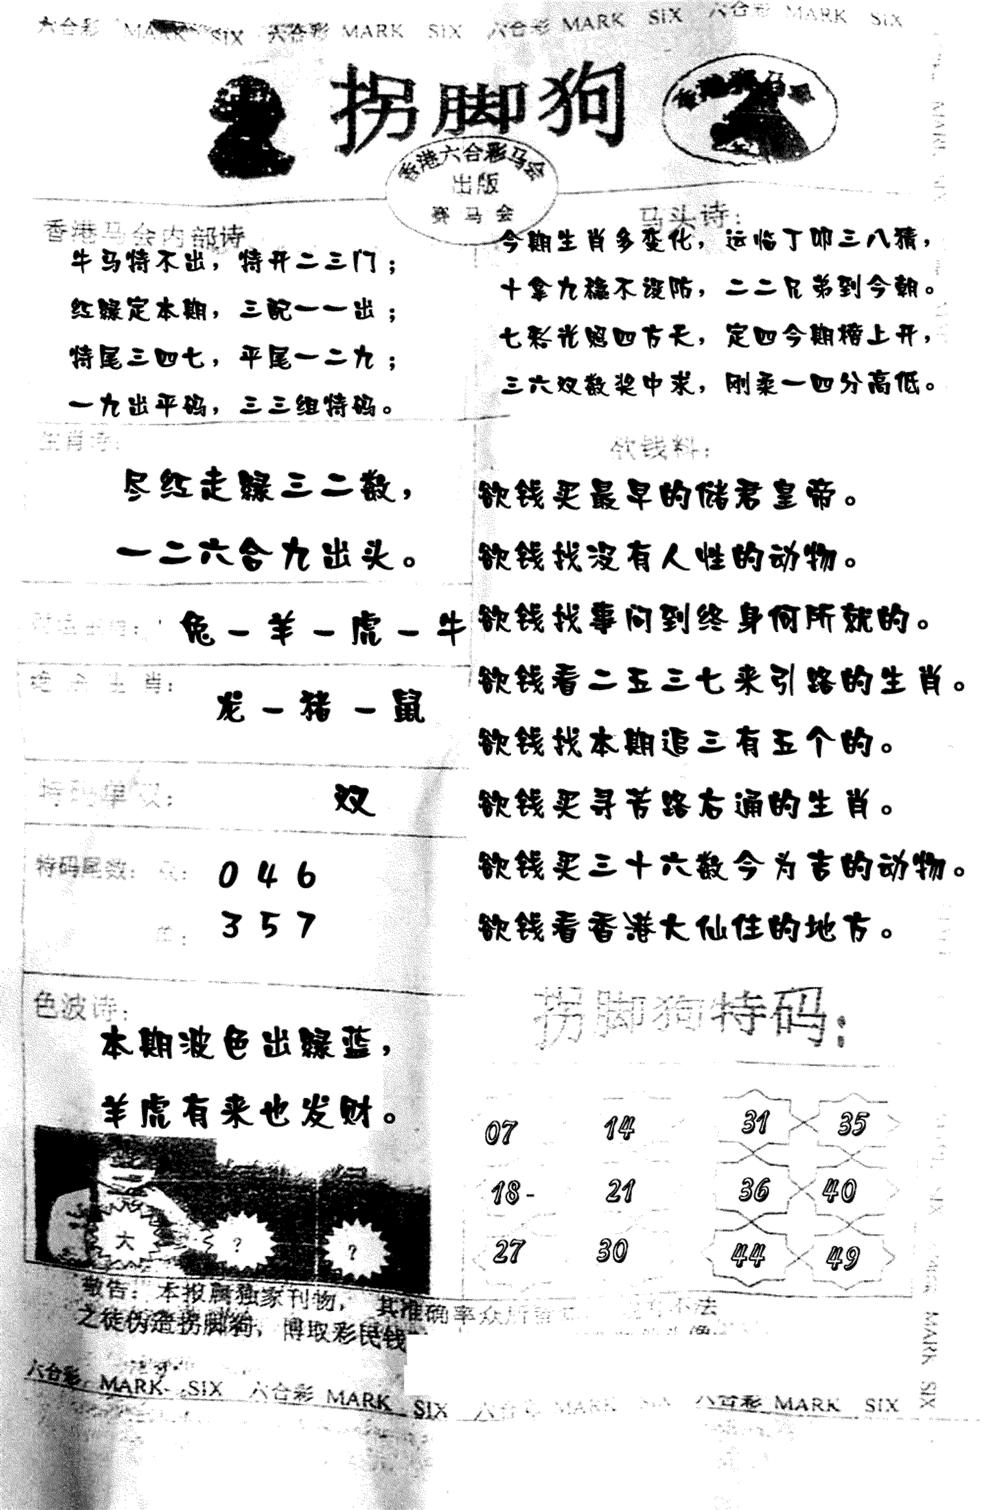 六合彩 MARK SIX 六合彩 MARK SIX 六合彩 MARK SIX 六合彩 MARK SIX
拐脚狗
香港赛马会
香港六合彩马会
出版
赛马会
香港马会内部诗
牛马特不出，特开二三门；
红绿定本期，三配一一出；
特尾三四七，平尾一二九；
一九出平码，三三组特码。
马头诗：
今期生肖多变化，运临丁卯三八猜，
十拿九稳不设防，二二兄弟到今朝。
七彩光照四方天，定四今期榜上开，
三六双数奖中求，刚柔一四分高低。
生肖诗：
尽红走绿三二数，
一二六合九出头。
欲钱料：
欲钱买最早的储君皇帝。
欲钱找没有人性的动物。
欲钱找事问到终身何所就的。
欲钱看二五三七来引路的生肖。
欲钱找本期追三有五个的。
欲钱买寻芳路右通的生肖。
欲钱买三十六数今为吉的动物。
欲钱看香港大仙住的地方。
兔－羊－虎－牛
绝杀生肖：
龙－猪－鼠
特码单双：
双
特码尾数：双：
0 4 6
单：
3 5 7
色波诗：
本期波色出绿蓝，
羊虎有来也发财。
大 ？ ？
拐脚狗特码：
07 14 31 35
18- 21 36 40
27 30 44 49
敬告：本报属独家刊物，其准确率众所
不法
之徒伪造拐脚狗，博取彩民钱
六合彩 MARK SIX 六合彩 MARK SIX 六合彩 MARK SIX 六合彩 MARK SIX
MARK SIX